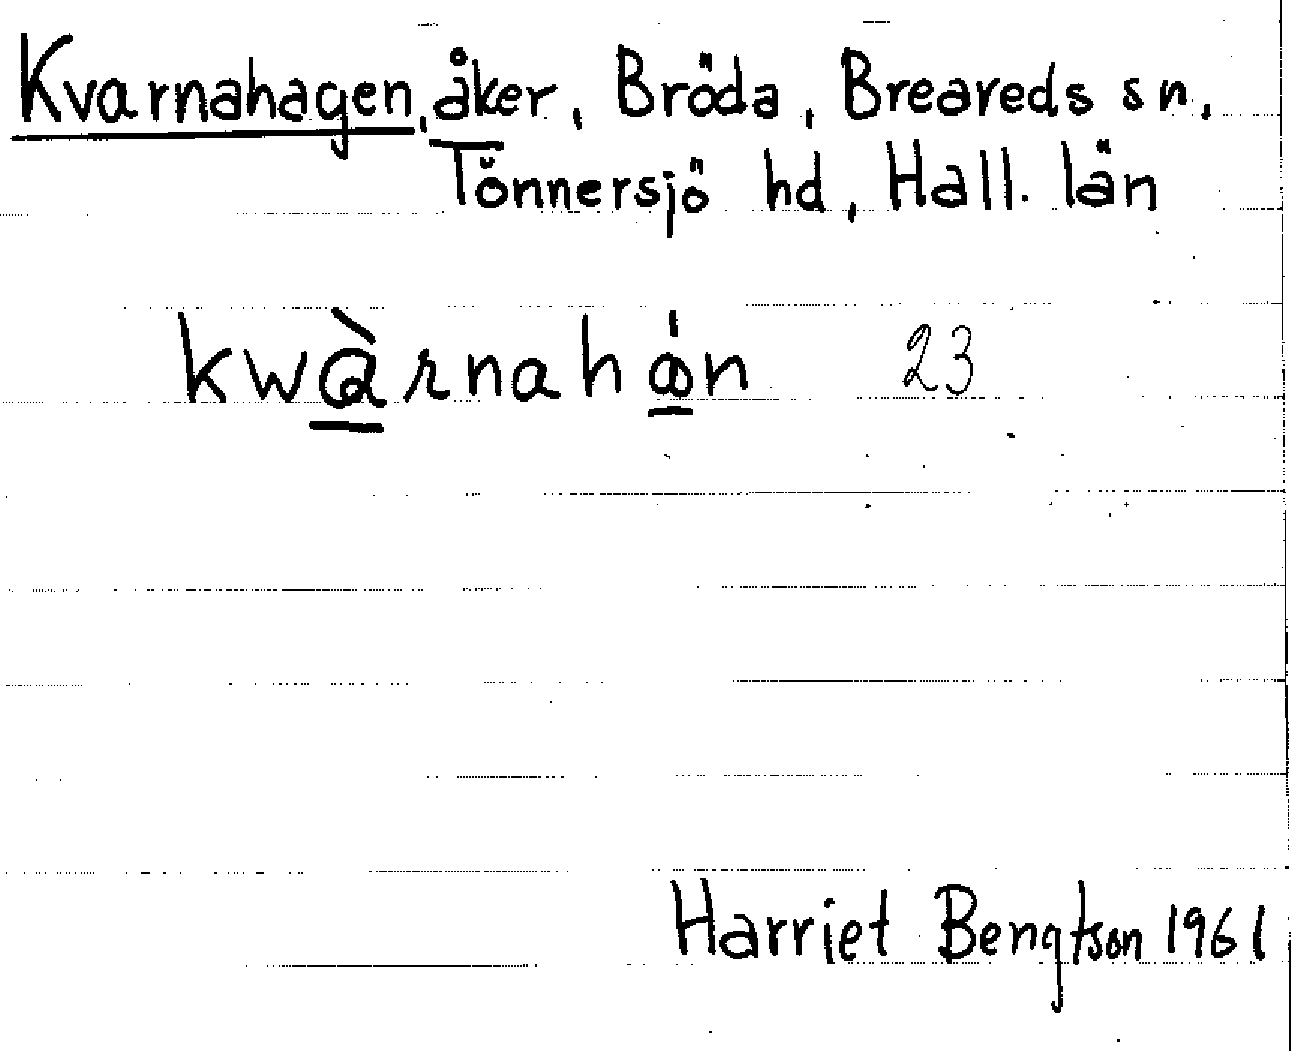 Kvarnahagen, åker, Bröda, Breareds sn,
Tönnersjö hd, Hall. län
kwàrnahón 23
Harriet Bengtson 1961